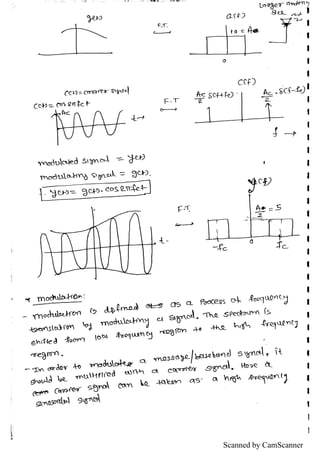 Larger antenna
size
g(t)
F.T.
G(f)
10 = A
0
C(t) = carrier signal
C(f)
C(t) = cos 2πfct
Ac
t→
F.T
Ac/2 δ(f+fc)
Ac/2 · δ(f-fc)
f →
modulated signal = y(t)
modulating signal = g(t).
y(t) = g(t). cos 2πfct
y(f)
F.T.
t.
A/2 = 5
-fc
0
fc
* modulation:
- modulation is defined as a Process of frequency
translation by modulating a signal. The spectrum is
shifted from low frequency region to the high frequency
region.
- In order to modulate a message/baseband signal, it
should be multiplied with a carrier signal. Here a
carrier signal can be taken as a high frequency
sinusoidal signal
Scanned by CamScanner